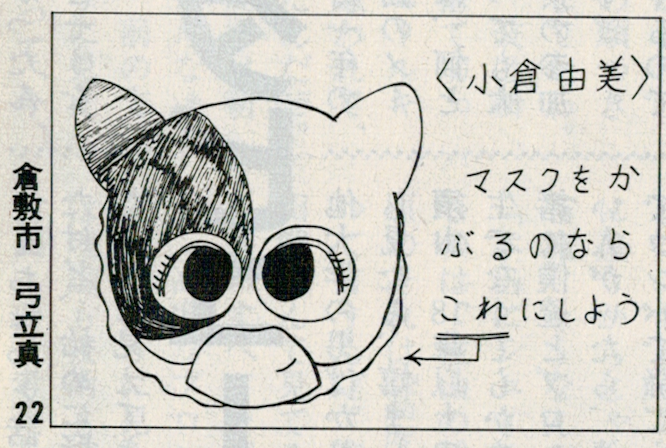 〈小倉由美〉
マスクをか
ぶるのなら
これにしよう
倉敷市 弓立真 22